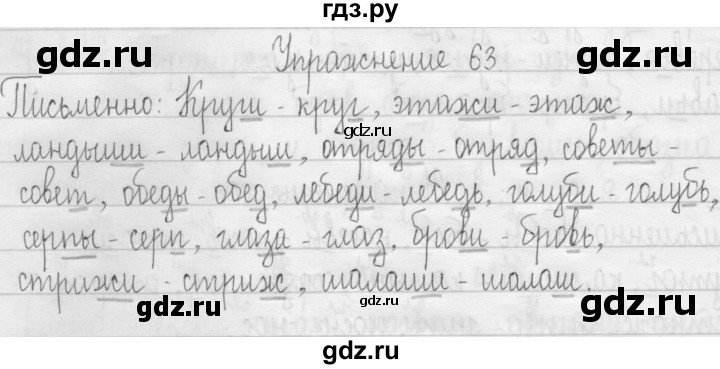 гдз.ру
gdz.ru gdz.ru
Упражнение 63.
Письменно: Круги - круг, этажи - этаж,
gdz.ru
ландыши - ландыш, отряды - отряд, советы -
совет, обеды - обед, лебеди - лебедь, голуби - голубь,
gdz.ru
серпы - серп, глаза - глаз, брови - бровь,
стрижи - стриж, шалаши - шалаш.
gdz.ru gdz.ru gdz.ru
gdz.ru